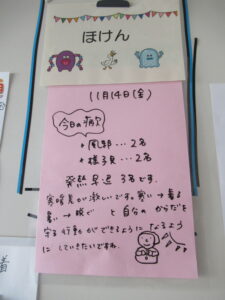 ほけん
11月14日(金)
今日の病欠
・風邪…2名
・様子見…2名
発熱早退 3名です。
寒暖差が激しいです。寒い→着る
暑い→脱ぐ と自分のからだを
守る行動ができるようになるよう
にしていきたいですね。
着